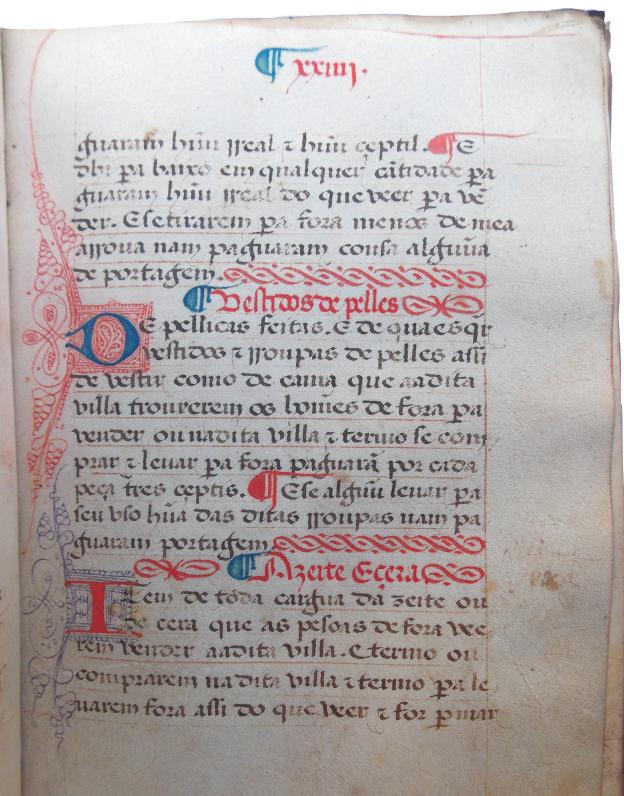 ¶ xxiiij.
guaram hũu rreal ⁊ hũu ceptil. ¶ E
dhi pa baixo em qualquer cãtidade pa
guaram hũu rreal do que veer pa vẽ
der. E se tirarem pa fora menos de mea
arroua nam paguaram cousa alguũa
de portagem.
¶ Vestidos de pelles
DE pellicas feitas. E de quaesqr
vestidos ⁊ rroupas de pelles assi
de vestir como de cama que aadita
villa trouxerem os homẽs de fora pa
vender ou nadita villa ⁊ termo se com
prar ⁊ leuar pa fora paguarã por cada
peça tres ceptis. ¶ E se alguũ leuar pa
seu vso hũa das ditas rroupas nam pa
guaram portagem
¶ Azeite E cera
Item de toda carrgua dazeite ou
de cera que as pesoas de fora vee
rem vender aadita villa. E termo ou
comprarem na dita villa ⁊ termo pa le
uarem fora assi do que veer ⁊ for p mar